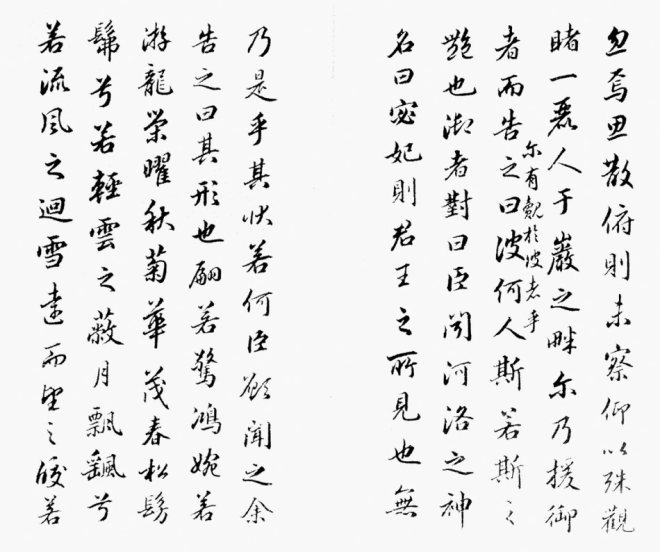 忽焉思散俯則未察仰以殊觀
睹一麗人于巖之畔尔乃援御
尔有覿於彼者乎
者而告之曰彼何人斯若斯之
艷也御者對曰臣聞河洛之神
名曰宓妃則君王之所見也無
乃是乎其狀若何臣願聞之余
告之曰其形也翩若驚鴻婉若
游龍榮曜秋菊華茂春松髣
髴兮若輕雲之蔽月飄颻兮
若流風之迴雪遠而望之皎若